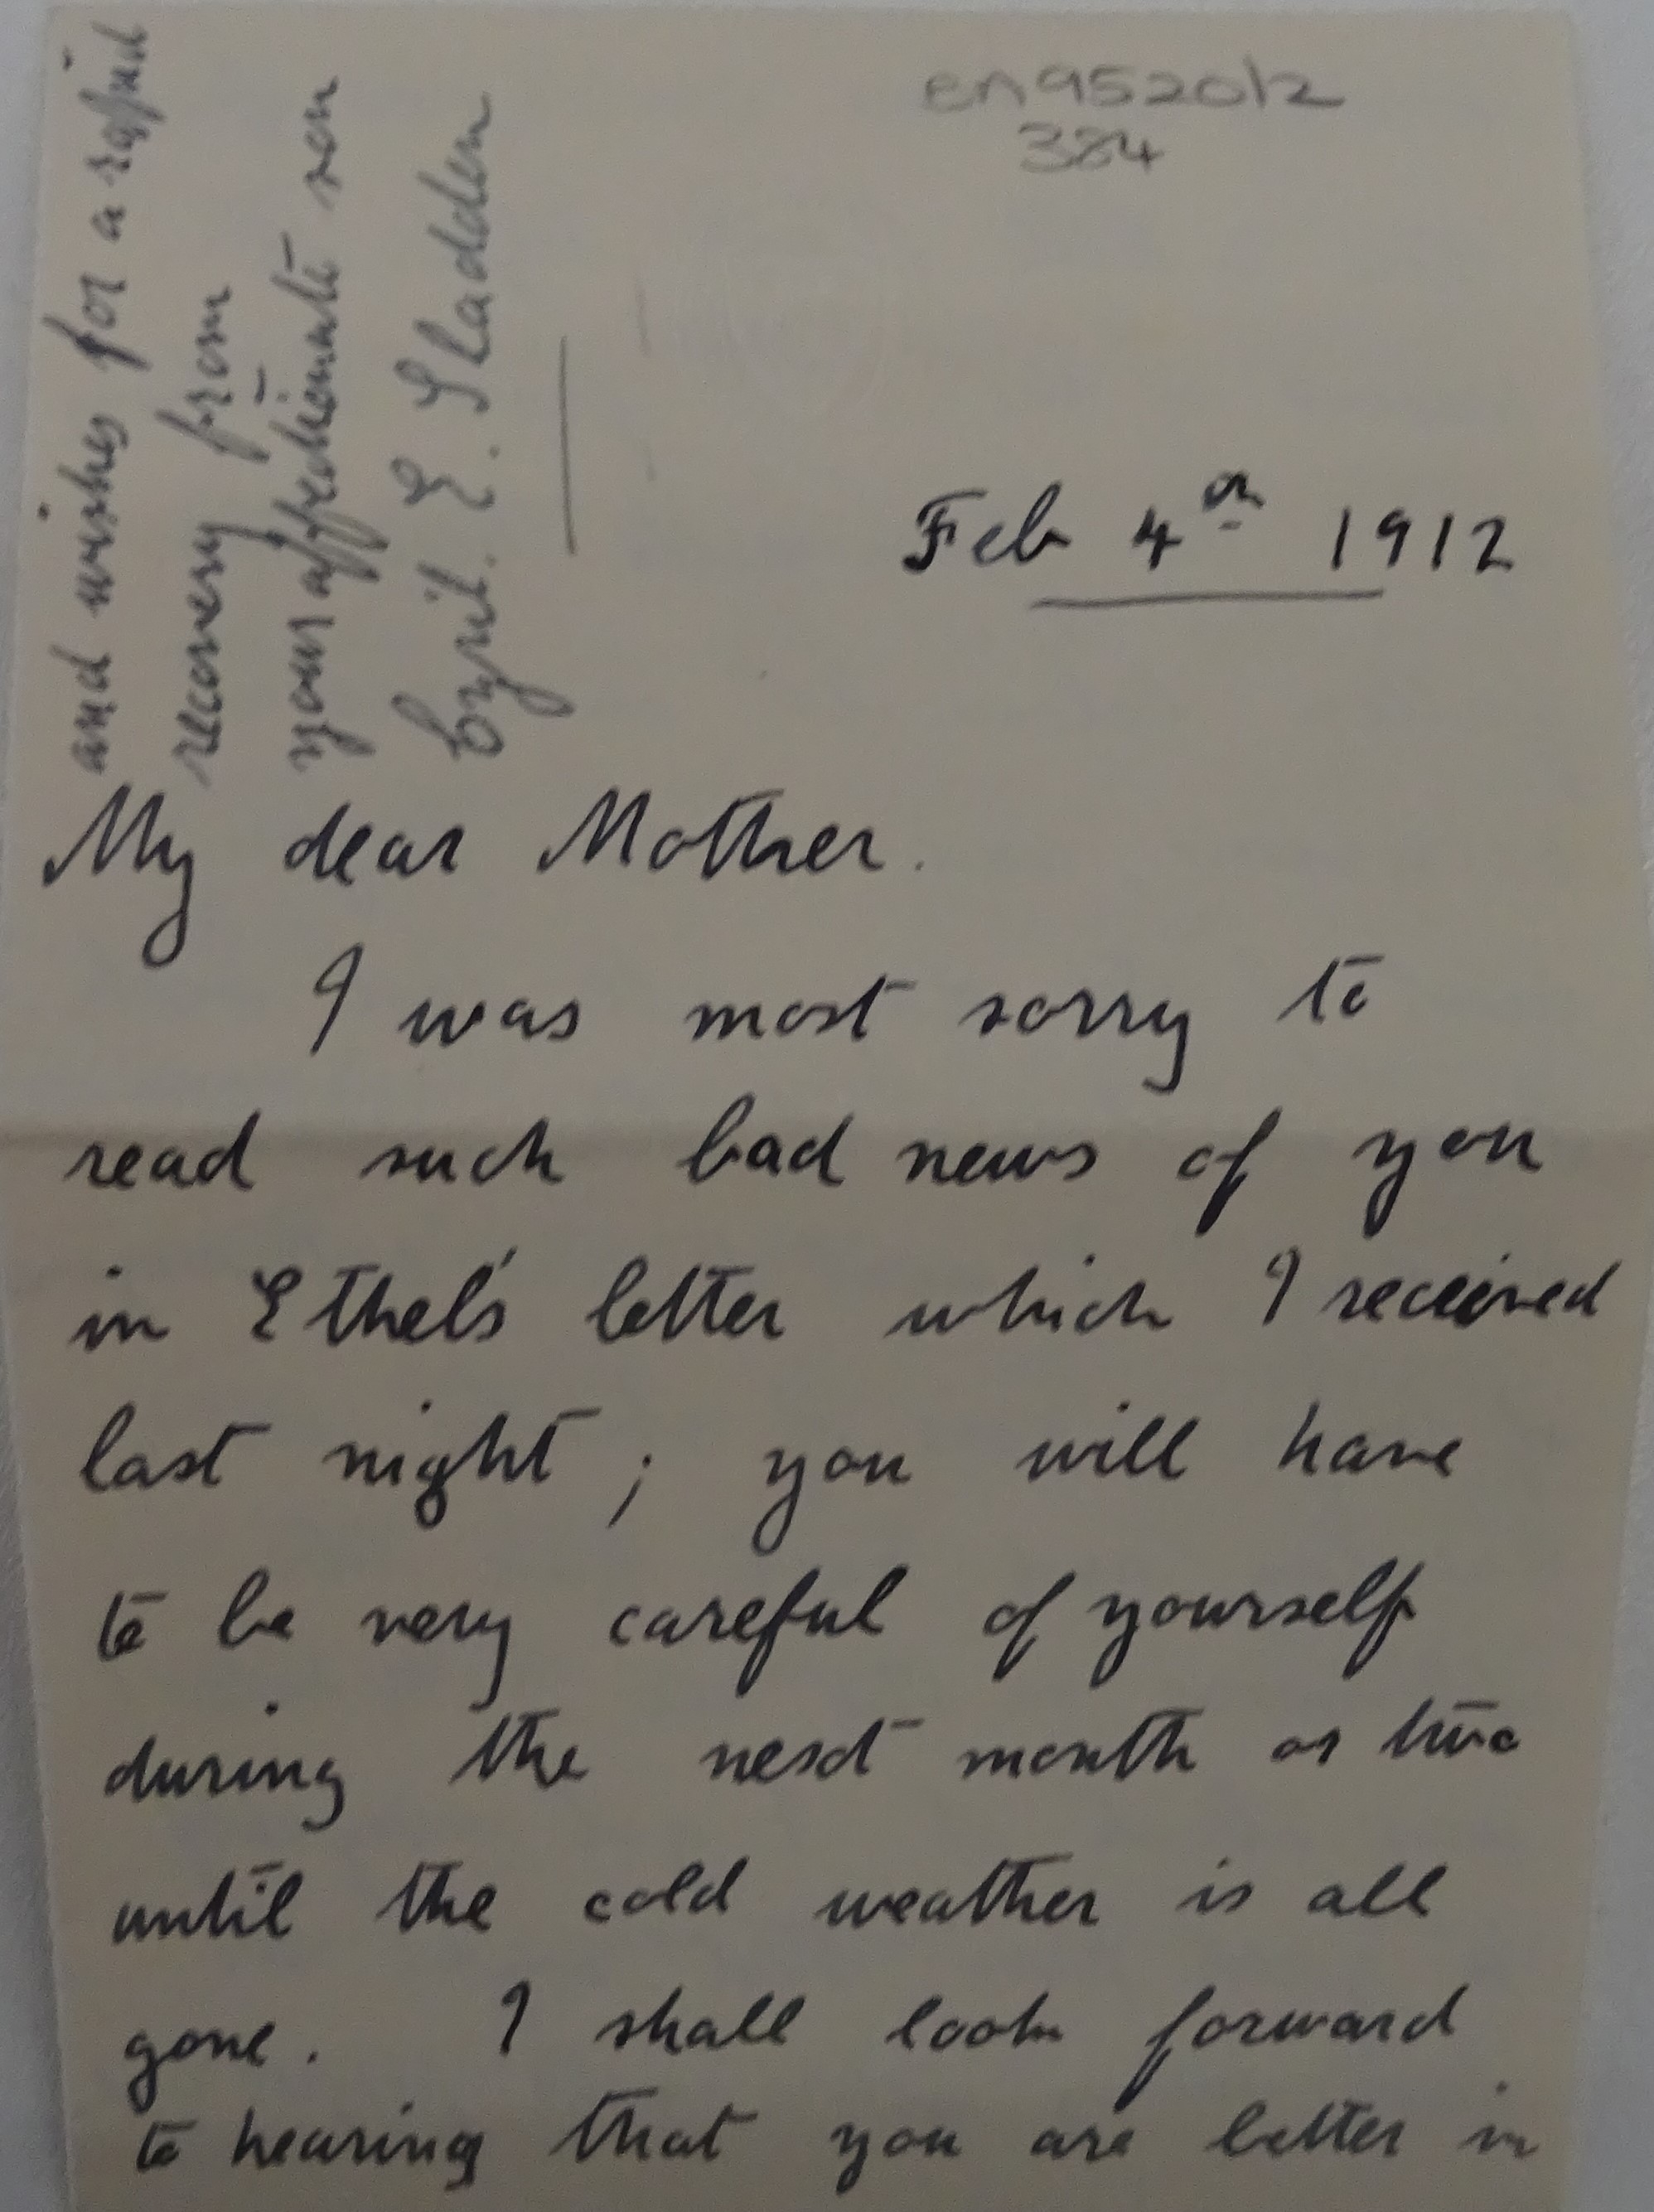 en952012
384
Feb 4th 1912
My dear Mother.
I was most sorry to
read such bad news of you
in Ethel's letter which I received
last night; you will have
to be very careful of yourself
during the next month or two
until the cold weather is all
gone. I shall look forward
to hearing that you are better in
and wishes for a rapid
recovery from
your affectionate son
Cyril. E. Sladden